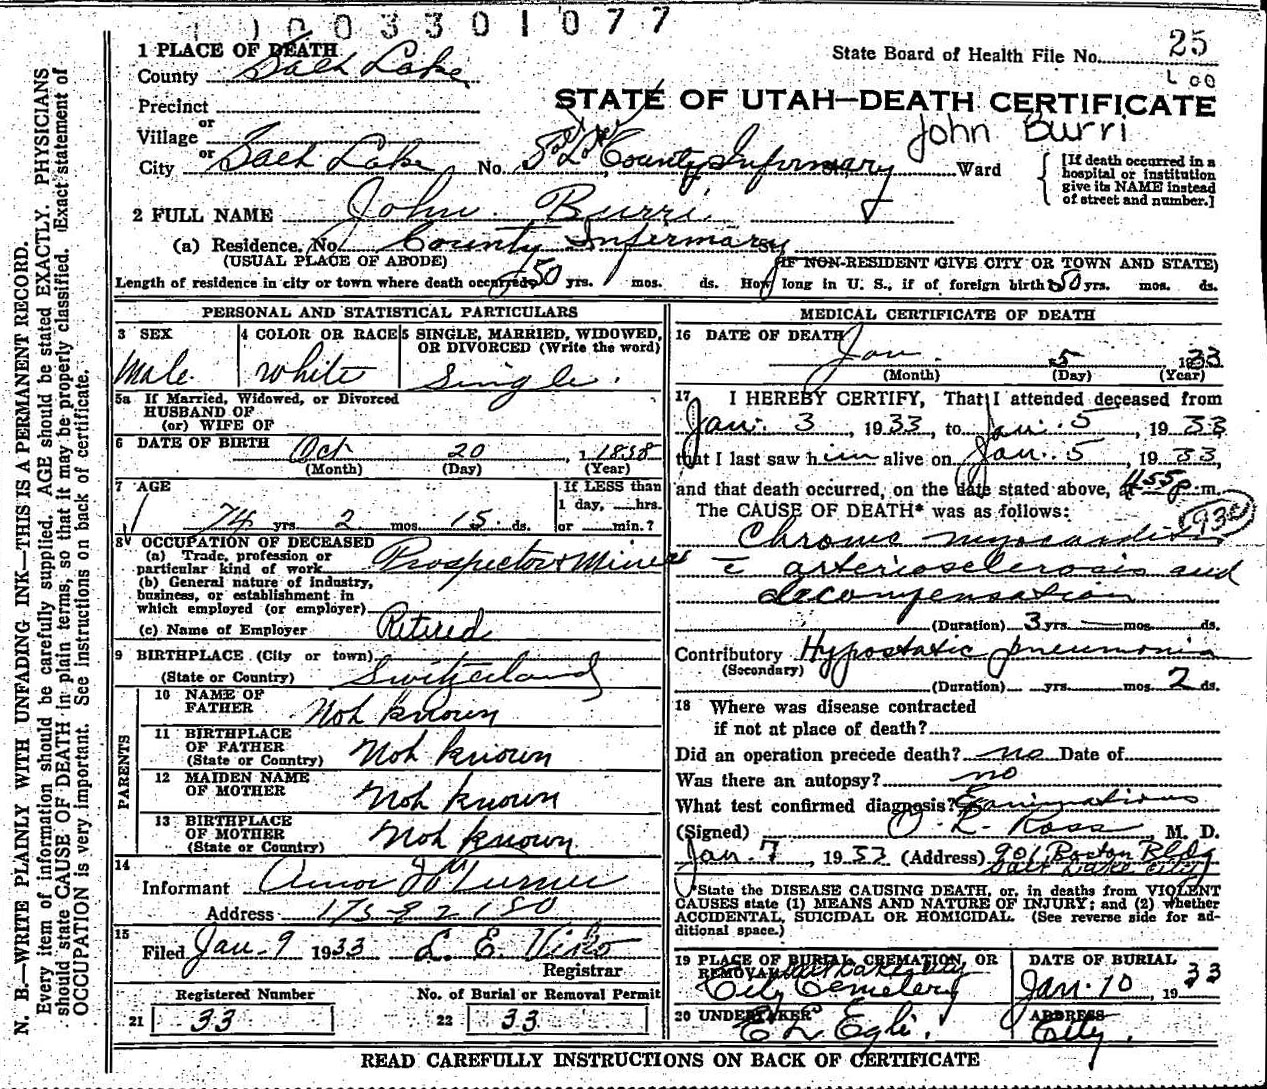 1003301077
1 PLACE OF DEATH
State Board of Health File No. 25
County Salt Lake
L 00
Precinct
STATE OF UTAH—DEATH CERTIFICATE
or
Village
John Burri
or
City Salt Lake No. Salt Lake County Infirmary St., Ward
[If death occurred in a hospital or institution give its NAME instead of street and number.]
2 FULL NAME John Burri
(a) Residence. No. County Infirmary St.
(USUAL PLACE OF ABODE) (IF NON-RESIDENT GIVE CITY OR TOWN AND STATE)
Length of residence in city or town where death occurred 50 yrs. mos. ds. How long in U. S., if of foreign birth 50 yrs. mos. ds.
PERSONAL AND STATISTICAL PARTICULARS
3 SEX 4 COLOR OR RACE 5 SINGLE, MARRIED, WIDOWED, OR DIVORCED (Write the word)
Male White Single.
5a If Married, Widowed, or Divorced
HUSBAND OF
(or) WIFE OF
6 DATE OF BIRTH Oct 20, 1858
(Month) (Day) (Year)
7 AGE If LESS than
1 day, hrs.
74 yrs. 2 mos. 15 ds. or min.?
8 OCCUPATION OF DECEASED
(a) Trade, profession or
particular kind of work Prospector & Miner
(b) General nature of Industry,
business, or establishment in
which employed (or employer)
(c) Name of Employer Retired
9 BIRTHPLACE (City or town)
(State or Country) Switzerland
PARENTS
10 NAME OF
FATHER Not known
11 BIRTHPLACE
OF FATHER
(State or Country) Not known
12 MAIDEN NAME
OF MOTHER Not known
13 BIRTHPLACE
OF MOTHER
(State or Country) Not known
14
Informant Turner
Address 175
15
Filed Jan-9 1933 L. E. Viko
Registrar
Registered Number No. of Burial or Removal Permit
21 33 22 33
MEDICAL CERTIFICATE OF DEATH
16 DATE OF DEATH
Jan. 5 1933
(Month) (Day) (Year)
17 I HEREBY CERTIFY, That I attended deceased from
Jan. 3, 1933, to Jan. 5, 1933,
that I last saw him alive on Jan. 5, 1933,
and that death occurred, on the date stated above, at 4:55 p.m.
The CAUSE OF DEATH* was as follows:
Chronic myocarditis
c arteriosclerosis and
decompensation
(Duration) 3 yrs. — mos. ds.
Contributory Hypostatic pneumonia
(Secondary)
(Duration) yrs. mos. 2 ds.
18 Where was disease contracted
if not at place of death?
Did an operation precede death? no Date of
Was there an autopsy? no
What test confirmed diagnosis? Examinations
(Signed) O. L. Ross, M. D.
Jan. 7, 1933 (Address) 901 Boston Bldg
Salt Lake City
*State the DISEASE CAUSING DEATH, or, in deaths from VIOLENT
CAUSES state (1) MEANS AND NATURE OF INJURY; and (2) whether
ACCIDENTAL, SUICIDAL OR HOMICIDAL. (See reverse side for ad-
ditional space.)
19 PLACE OF BURIAL, CREMATION, OR DATE OF BURIAL
REMOVAL Salt Lake City
City Cemetery Jan. 10, 1933
20 UNDERTAKER ADDRESS
E L Egli. City.
READ CAREFULLY INSTRUCTIONS ON BACK OF CERTIFICATE
N. B.—WRITE PLAINLY WITH UNFADING INK—THIS IS A PERMANENT RECORD.
Every item of information should be carefully supplied. AGE should be stated EXACTLY. PHYSICIANS
should state CAUSE OF DEATH in plain terms, so that it may be properly classified. Exact statement of
OCCUPATION is very important. See instructions on back of certificate.